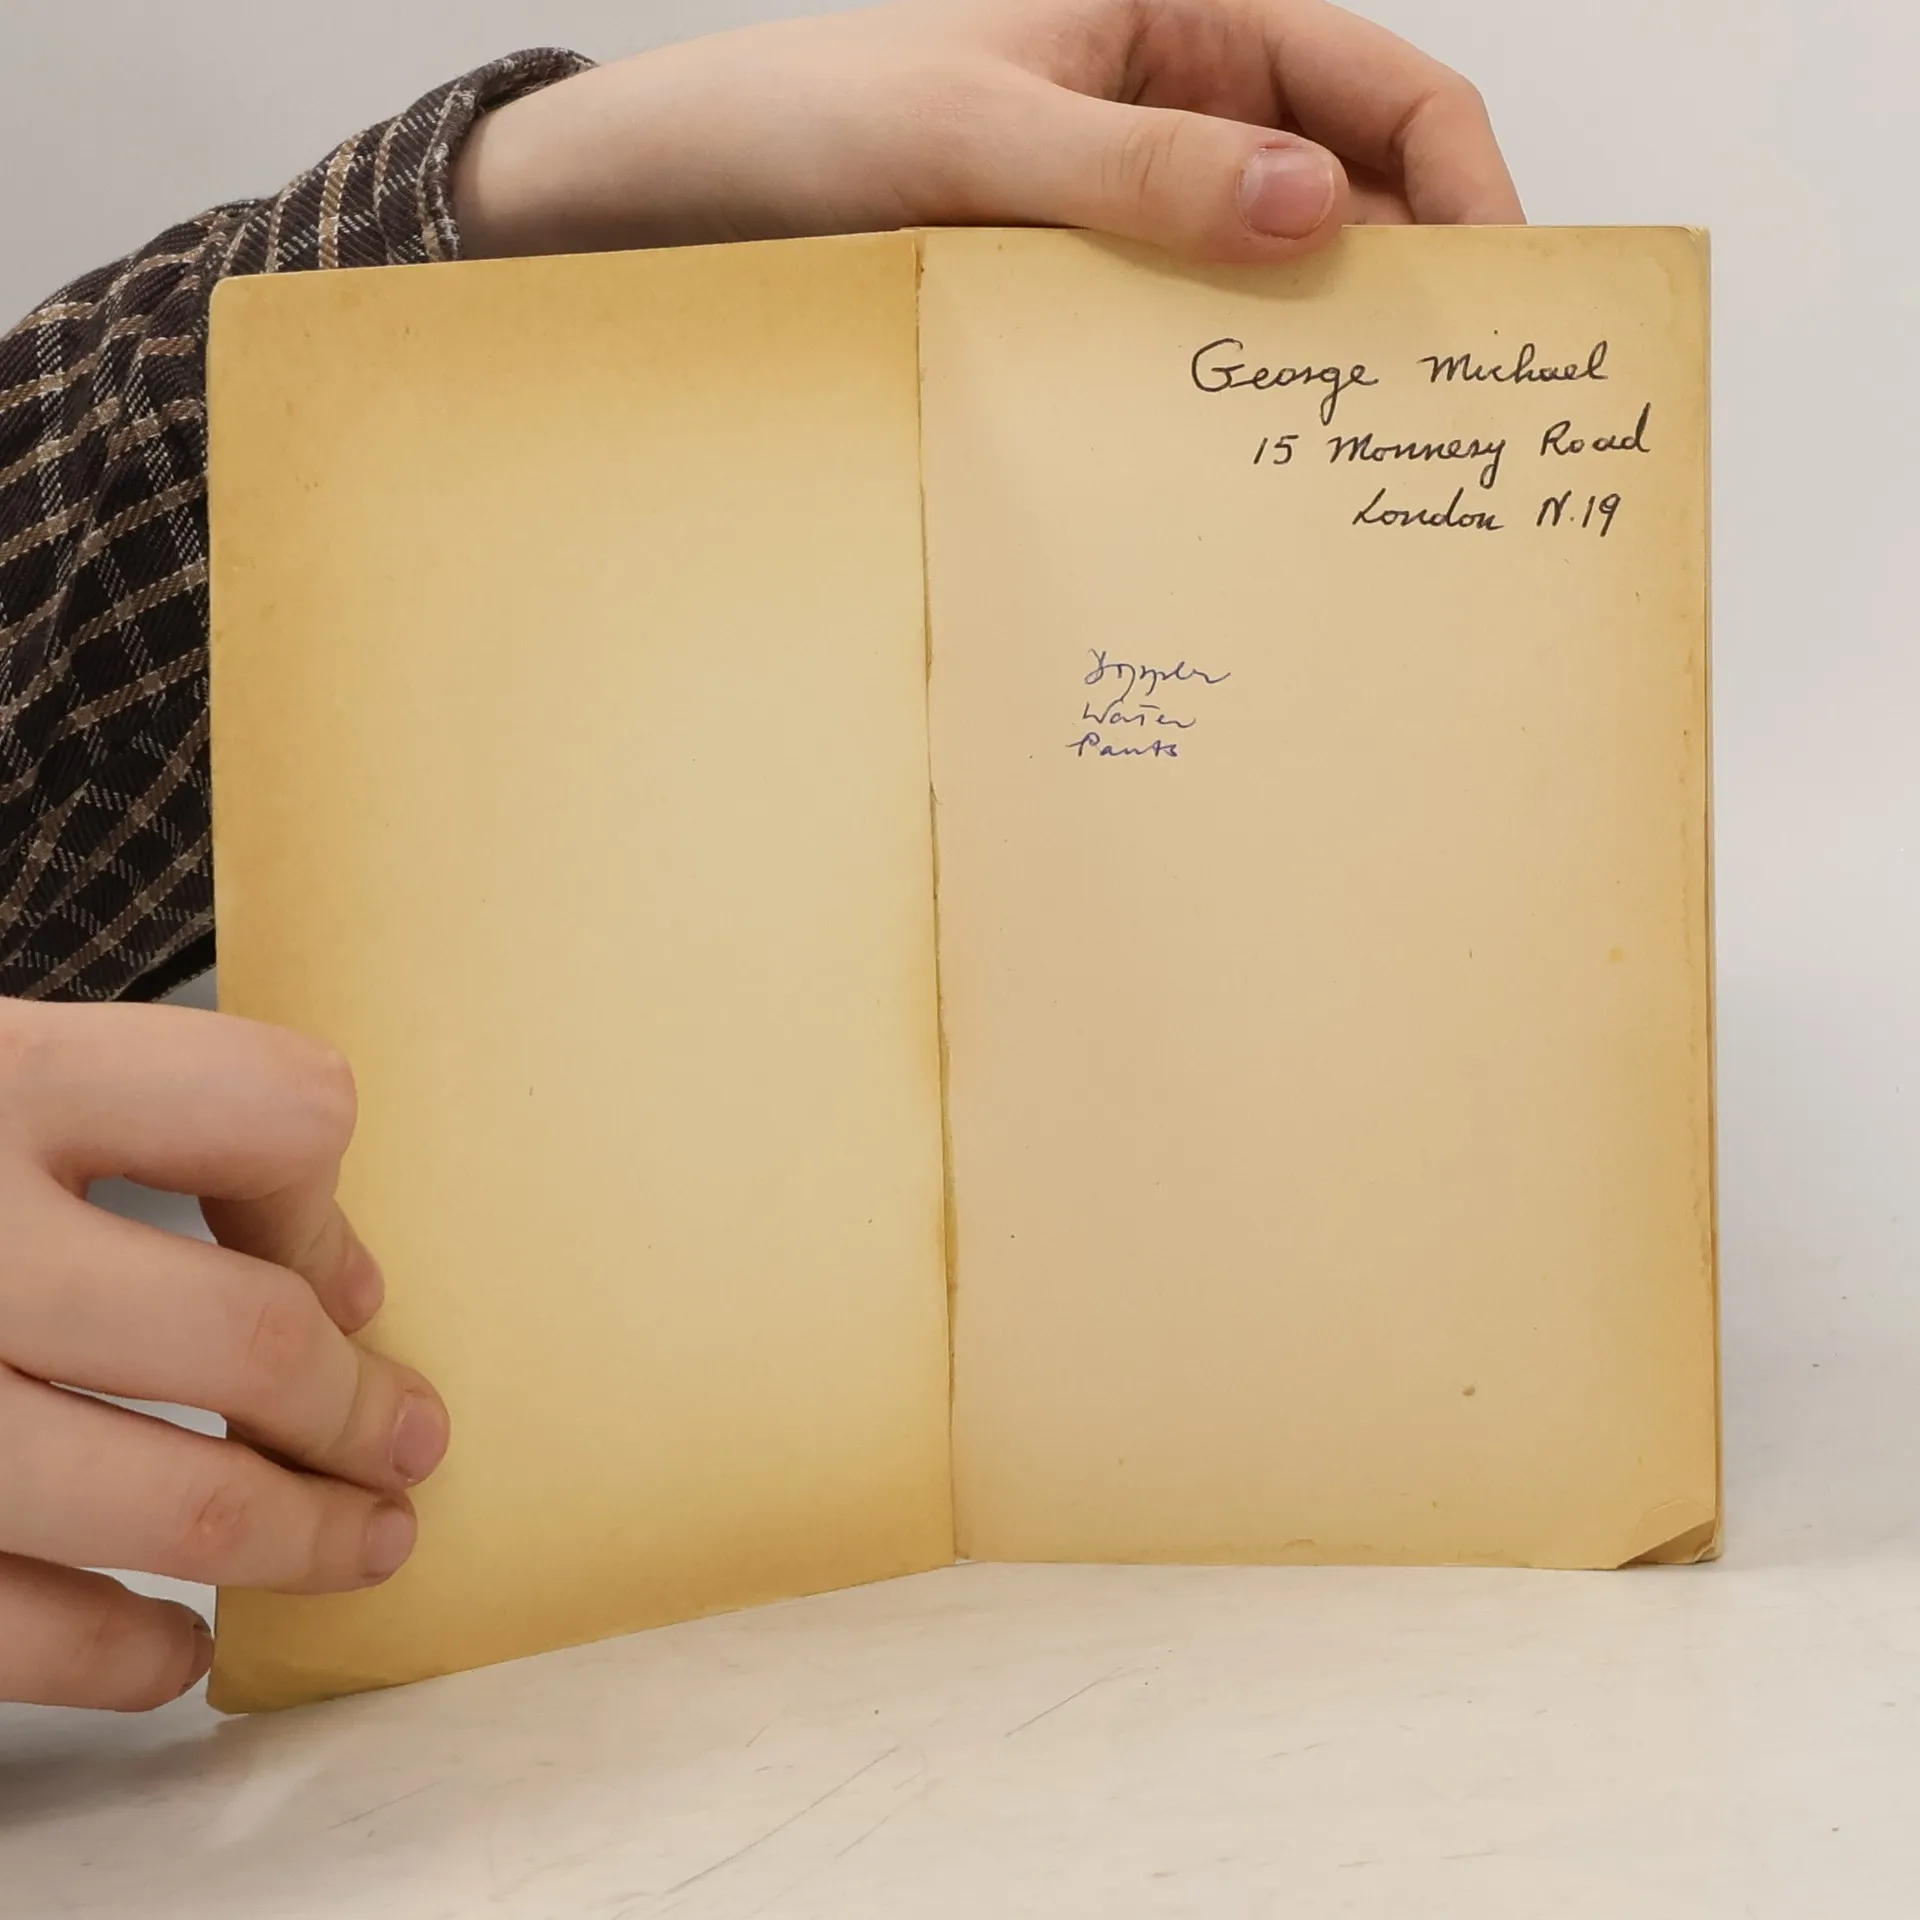 George Michael
15 Monnery Road
London N.19
Water
Pants